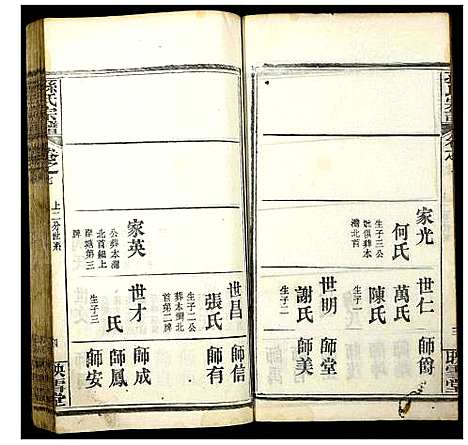 家光
何氏
生子三公
妣俱葬本
灣北首
世仁
萬氏
陳氏
生子一
師爵
世明
謝氏
生子二
師堂
師美
世昌
張氏
生子二公
葬本灣北
首第二牌
師信
師有
家英
公葬本灣
北首組上
第三
牌
世才
氏
生子三
師成
師鳳
師安
孫氏宗譜
卷之七
上二分世系
映雪堂